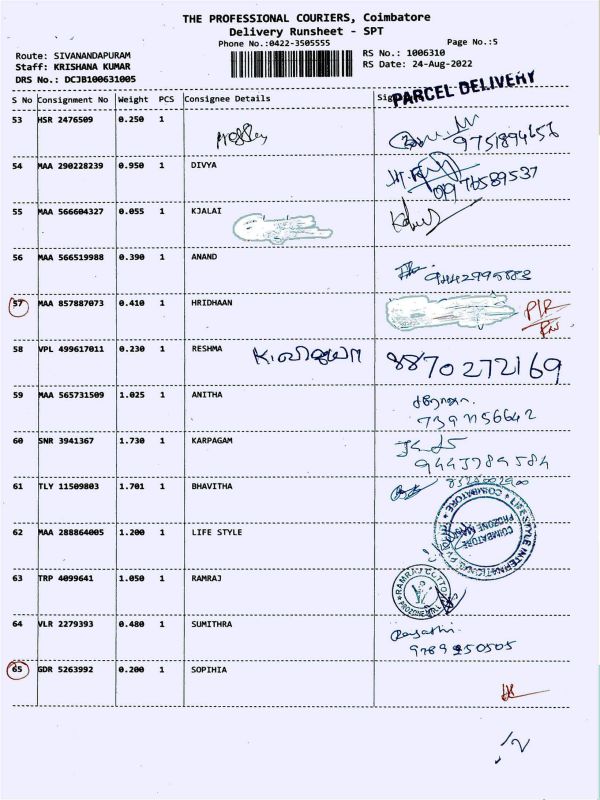 THE PROFESSIONAL COURIERS, Coimbatore
Delivery Runsheet - SPT
Phone No.:0422-3505555
Page No.:5
Route: SIVANANDAPURAM
Staff: KRISHANA KUMAR
DRS No.: DCJB100631005
RS No.: 1006310
RS Date: 24-Aug-2022
PARCEL DELIVERY
S No Consignment No Weight PCS Consignee Details
53 HSR 2476509 0.250 1
9751894656
54 MAA 290228239 0.950 1 DIVYA
9176589537
55 MAA 566604327 0.055 1 KJALAI
56 MAA 566519988 0.390 1 ANAND
9442995883
57 MAA 857887073 0.410 1 HRIDHAAN
58 VPL 499617011 0.230 1 RESHMA
8870272169
59 MAA 565731509 1.025 1 ANITHA
60 SNR 3941367 1.730 1 KARPAGAM
9443789584
61 TLY 11509803 1.701 1 BHAVITHA
62 MAA 288864005 1.200 1 LIFE STYLE
LIFESTYLE INTERNATIONAL
COIMBATORE
COIMBATORE
63 TRP 4099641 1.050 1 RAMRAJ
RAMRAJ COTTON
64 VLR 2279393 0.480 1 SUMITHRA
9789250505
65 GDR 5263992 0.200 1 SOPIHIA